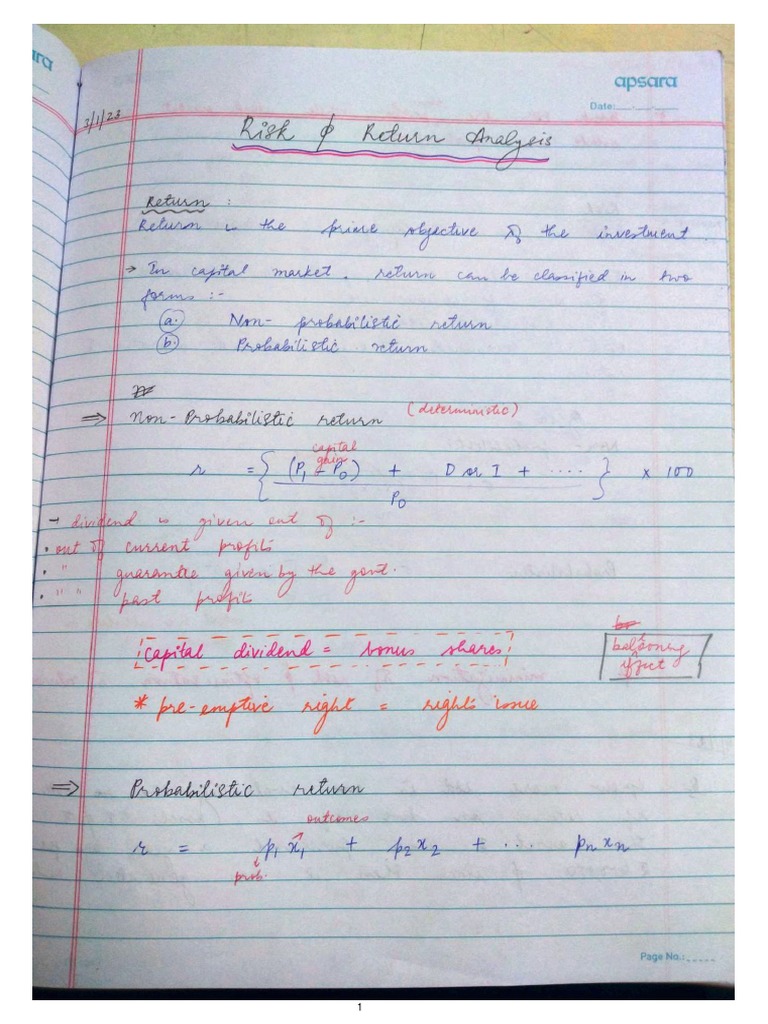 ara
apsara
Date:___.___.___
3/1/23
Risk & Return Analysis
Return :
Return is the prime objective of the investment.
→ In capital market, return can be classified in two
forms :-
(a.) Non-probabilistic return
(b.) Probabilistic return
⇒ Non-Probabilistic return (deterministic)
capital
gain
r = { (P1 - P0) + D or I + .... } x 100
P0
→ dividend is given out of :-
• out of current profits
• " guarantee given by the govt.
• " " past profits
Capital dividend = bonus shares
balooning
effect
* pre-emptive right = rights issue
⇒ Probabilistic return
outcomes
r = p1 x1 + p2 x2 + ... pn xn
prob.
Page No.:_____
1